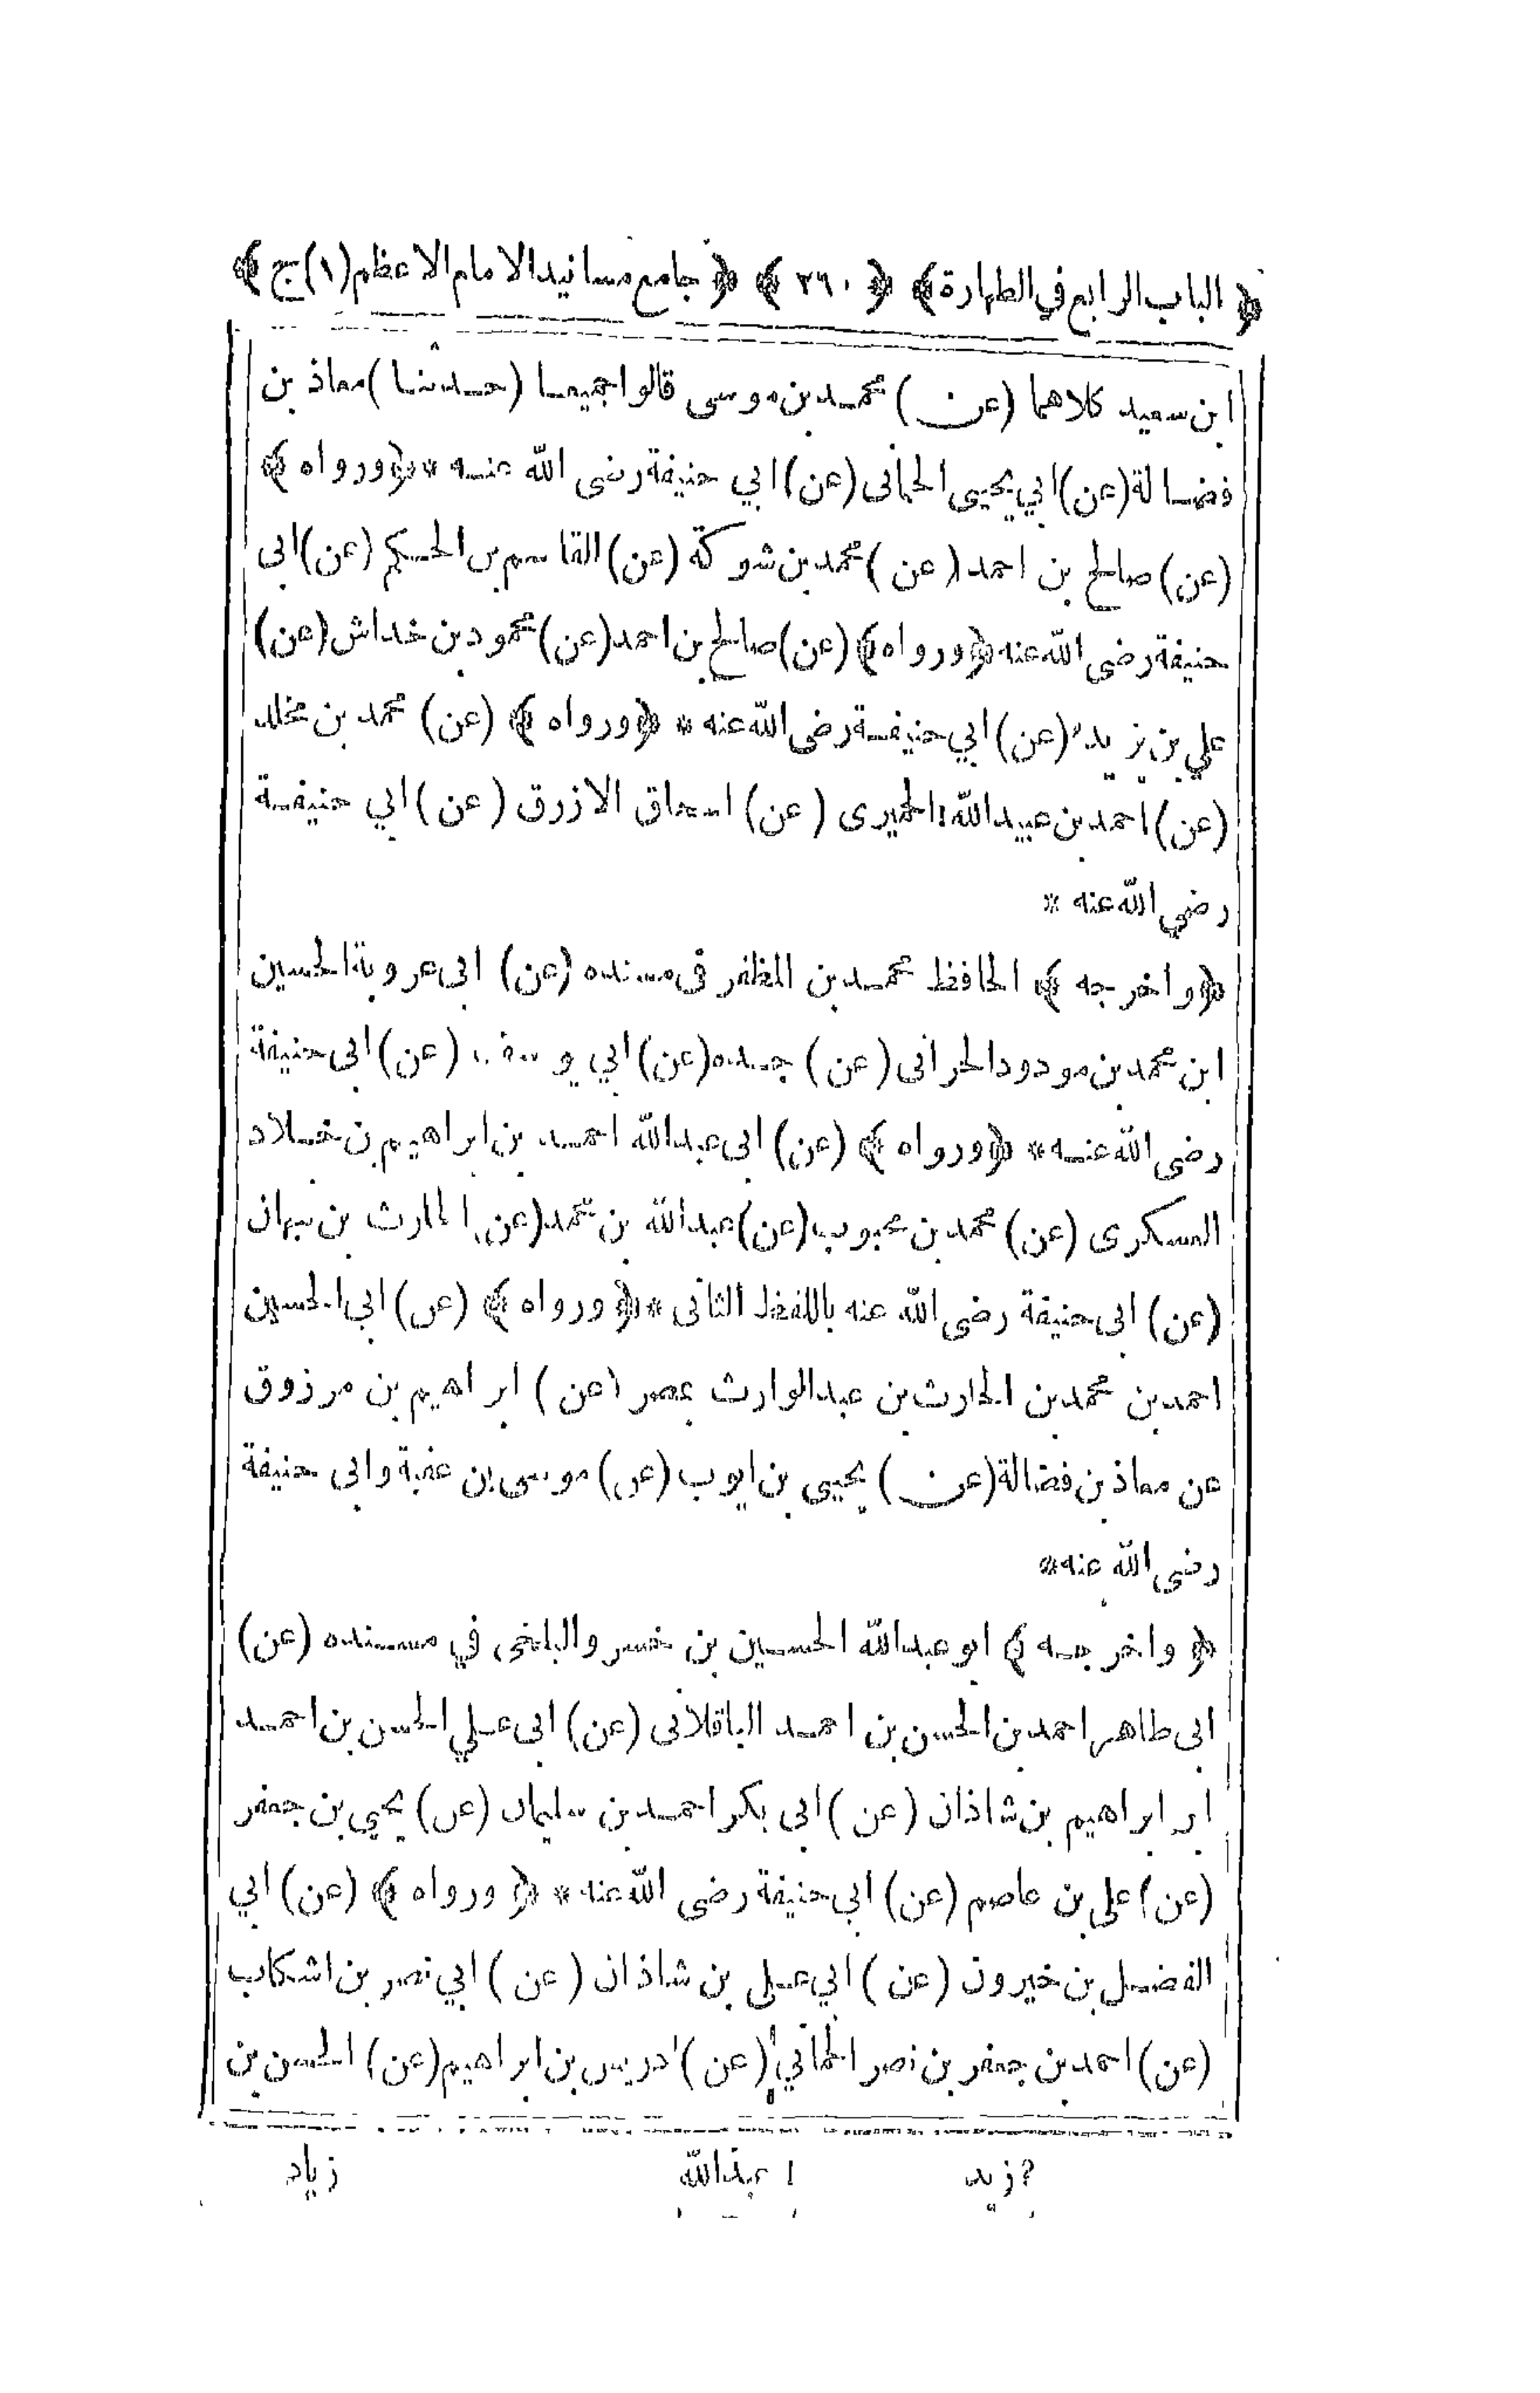 ﴿ الباب الرابع في الطهارة﴾ ﴿ ٢٦٠ ﴾ ﴿ جامع مسانيد الامام الاعظم(١)ج ﴾
ابن سعيد كلاهما (عن) محمد بن موسى قالوا جميعا (حدثنا) معاذ بن
فضالة (عن) ابي يحيى الحمانى (عن) ابي حنيفة رضى الله عنه * ﴿ورواه ﴾
(عن) صالح بن احمد (عن) محمد بن شوكة (عن) القاسم بن الحكم (عن) ابى
حنيفة رضى الله عنه ﴿ورواه﴾ (عن) صالح بن احمد (عن) محمود بن خداش (عن)
علي بن يزيد (عن) ابي حنيفة رضى الله عنه * ﴿ورواه ﴾ (عن) محمد بن مخلد
(عن) احمد بن عبيد الله الحميرى (عن) اسحاق الازرق (عن) ابي حنيفة
رضي الله عنه *
﴿واخرجه ﴾ الحافظ محمد بن المظفر فى مسنده (عن) ابى عروبة الحسين
ابن محمد بن مودود الحرانى (عن) جده (عن) ابي يوسف (عن) ابى حنيفة
رضى الله عنه * ﴿ورواه ﴾ (عن) ابى عبد الله احمد بن ابراهيم بن خلاد
العسكرى (عن) محمد بن محبوب (عن) عبد الله بن محمد (عن) الحارث بن نبهان
(عن) ابى حنيفة رضى الله عنه باللفظ الثانى * ﴿ ورواه ﴾ (عن) ابي الحسين
احمد بن محمد بن الحارث بن عبد الوارث بمصر (عن) ابراهيم بن مرزوق
عن معاذ بن فضالة (عن) يحيى بن ايوب (عن) موسى بن عقبة وابى حنيفة
رضى الله عنه *
﴿ واخرجه ﴾ ابو عبد الله الحسين بن خسرو البلخى في مسنده (عن)
ابى طاهر احمد بن الحسن بن احمد الباقلانى (عن) ابى علي الحسن بن احمد
ابن ابراهيم بن شاذان (عن) ابى بكر احمد بن سليمان (عن) يحيى بن جعفر
(عن) على بن عاصم (عن) ابي حنيفة رضى الله عنه * ﴿ ورواه ﴾ (عن) ابي
الفضل بن خيرون (عن) ابي على بن شاذان (عن) ابي نصر بن اشكاب
(عن) احمد بن جعفر بن نصر الحماني (عن) ادريس بن ابراهيم (عن) الحسن بن
زيد ا عبد الله زياد